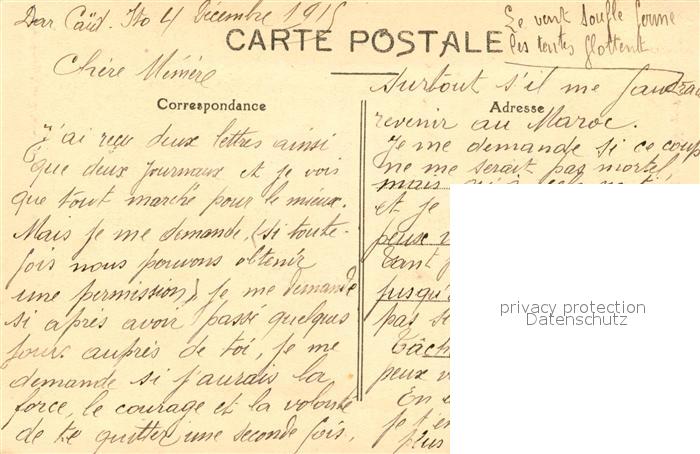 Dar Caïd. Ito 4 Décembre 1915
Le vent souffle ferme
les tentes flottent
CARTE POSTALE
Chère Mémère
Correspondance
J'ai reçu deux lettres ainsi
que deux journaux et je vois
que tout marche pour le mieux.
Mais je me demande, (si toute-
fois nous pouvons obtenir
une permission), je me demande
si après avoir passé quelques
jours auprès de toi, je me
demande si j'aurais la
force, le courage et la volonté
de te quitter une seconde fois,
surtout s'il me faudrait
Adresse
revenir au Maroc.
Je me demande si ce coup
ne me serait pas mortel,
mais
et je
peux
Tant
jusqu'
pas se
Tâch
peux v
En
je t'en
plus
privacy protection
Datenschutz